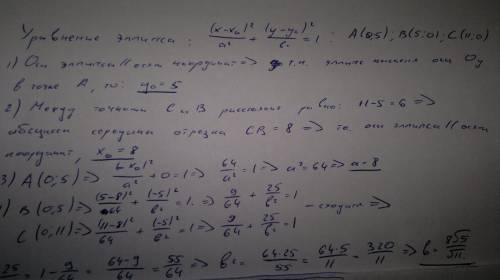 Уравнение эллипса : (x-x₀)²/a² + (y-y₀)²/b² = 1 : A(0;5); B(5;0); C(11;0)
1) Оси эллипса || осям координат => т.к. эллипс касается оси Oy
в точке A, то: y₀ = 5
2) Между точками C и B расстояние равно: 11-5=6 =>
абсцисса середины отрезка CB = 8 => т.к. оси эллипса || осям
координат, x₀ = 8
3) A(0;5) => (x₀)²/a² + 0 = 1 => 64/a² = 1 => a² = 64 => a = 8
B(0;5) => (5-8)²/64 + (-5)²/b² = 1 => 9/64 + 25/b² = 1
C(0;11) => (11-8)²/64 + (-5)²/b² = 1 => 9/64 + 25/b² = 1 - сходится =>
25 = 1 - 9/64 = 64-9/64 = 55/64 => b² = 64·25/55 = 64·5/11 = 320/11 => b = 8√5/√11